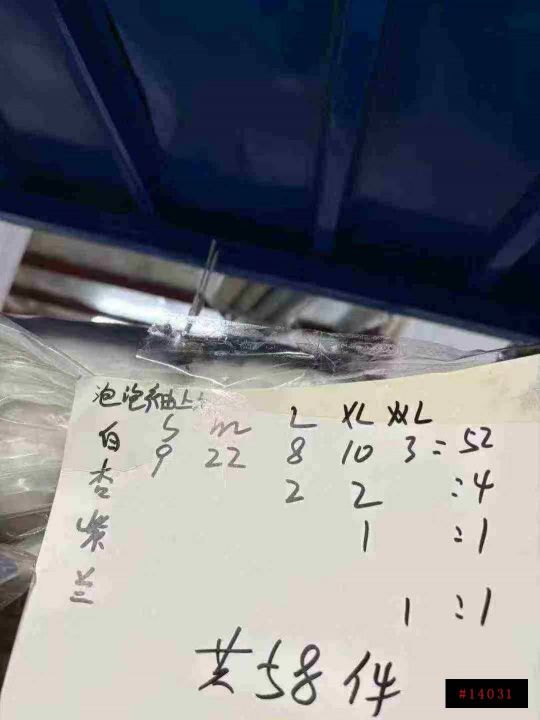 泡泡袖上
S m L XL XXL
白 9 22 8 10 3 = 52
杏 2 2 :4
紫 1 :1
兰 1 :1
共58件
#14031